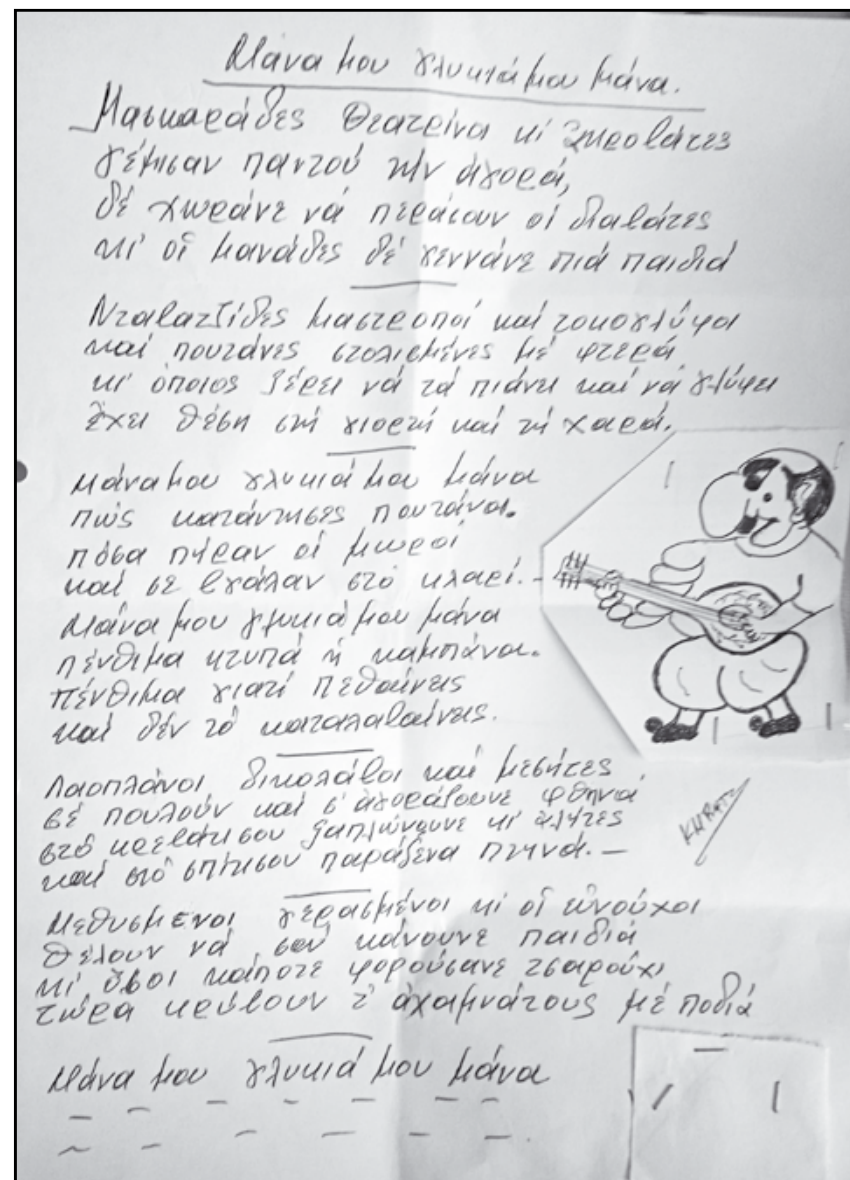 Μάνα μου γλυκιά μου μάνα.
Μασκαράδες Θεατρίνοι κι Ἀκροβάτες
γέμισαν παντού τήν ἀγορά,
δέ χωράνε νά περάσουν οἱ διαβάτες
κι' οἱ μανάδες δέ γεννάνε πιά παιδιά
Νταβατζίδες μαστροποί καί τοκογλύφοι
καί πουτάνες στολισμένες μέ φτερά
κι' ὅποιος ξέρει νά τά πιάνει καί νά γλύφει
ἔχει θέση στή γιορτή καί τή χαρά.
Μάνα μου γλυκιά μου μάνα
πώς κατάντησες πουτάνα.
πόσα πῆραν οἱ μωροί
καί σέ βγάλαν στό κλαρί.-
Μάνα μου γλυκιά μου μάνα
πένθιμα κτυπά ἡ καμπάνα.
πένθιμα γιατί πεθαίνεις
καί δέν τό καταλαβαίνεις.
Λαοπλάνοι δικολάβοι καί μεσῆτες
σέ πουλούν καί σ' ἀγοράζουνε φθηνά
στό κρεβάτι σου ξαπλώνουνε κι' ἀλῆτες
καί στό σπίτι σου παράξενα πτηνά.—
Μεθυσμένοι γερασμένοι κι οἱ εὐνούχοι
θέλουν νά σού κάνουνε παιδιά
κι' ὅσοι κάποτε φορούσανε τσαρούχι
τώρα κρύβουν τ' ἀχαμνάτους μέ ποδιά
Μάνα μου γλυκιά μου μάνα